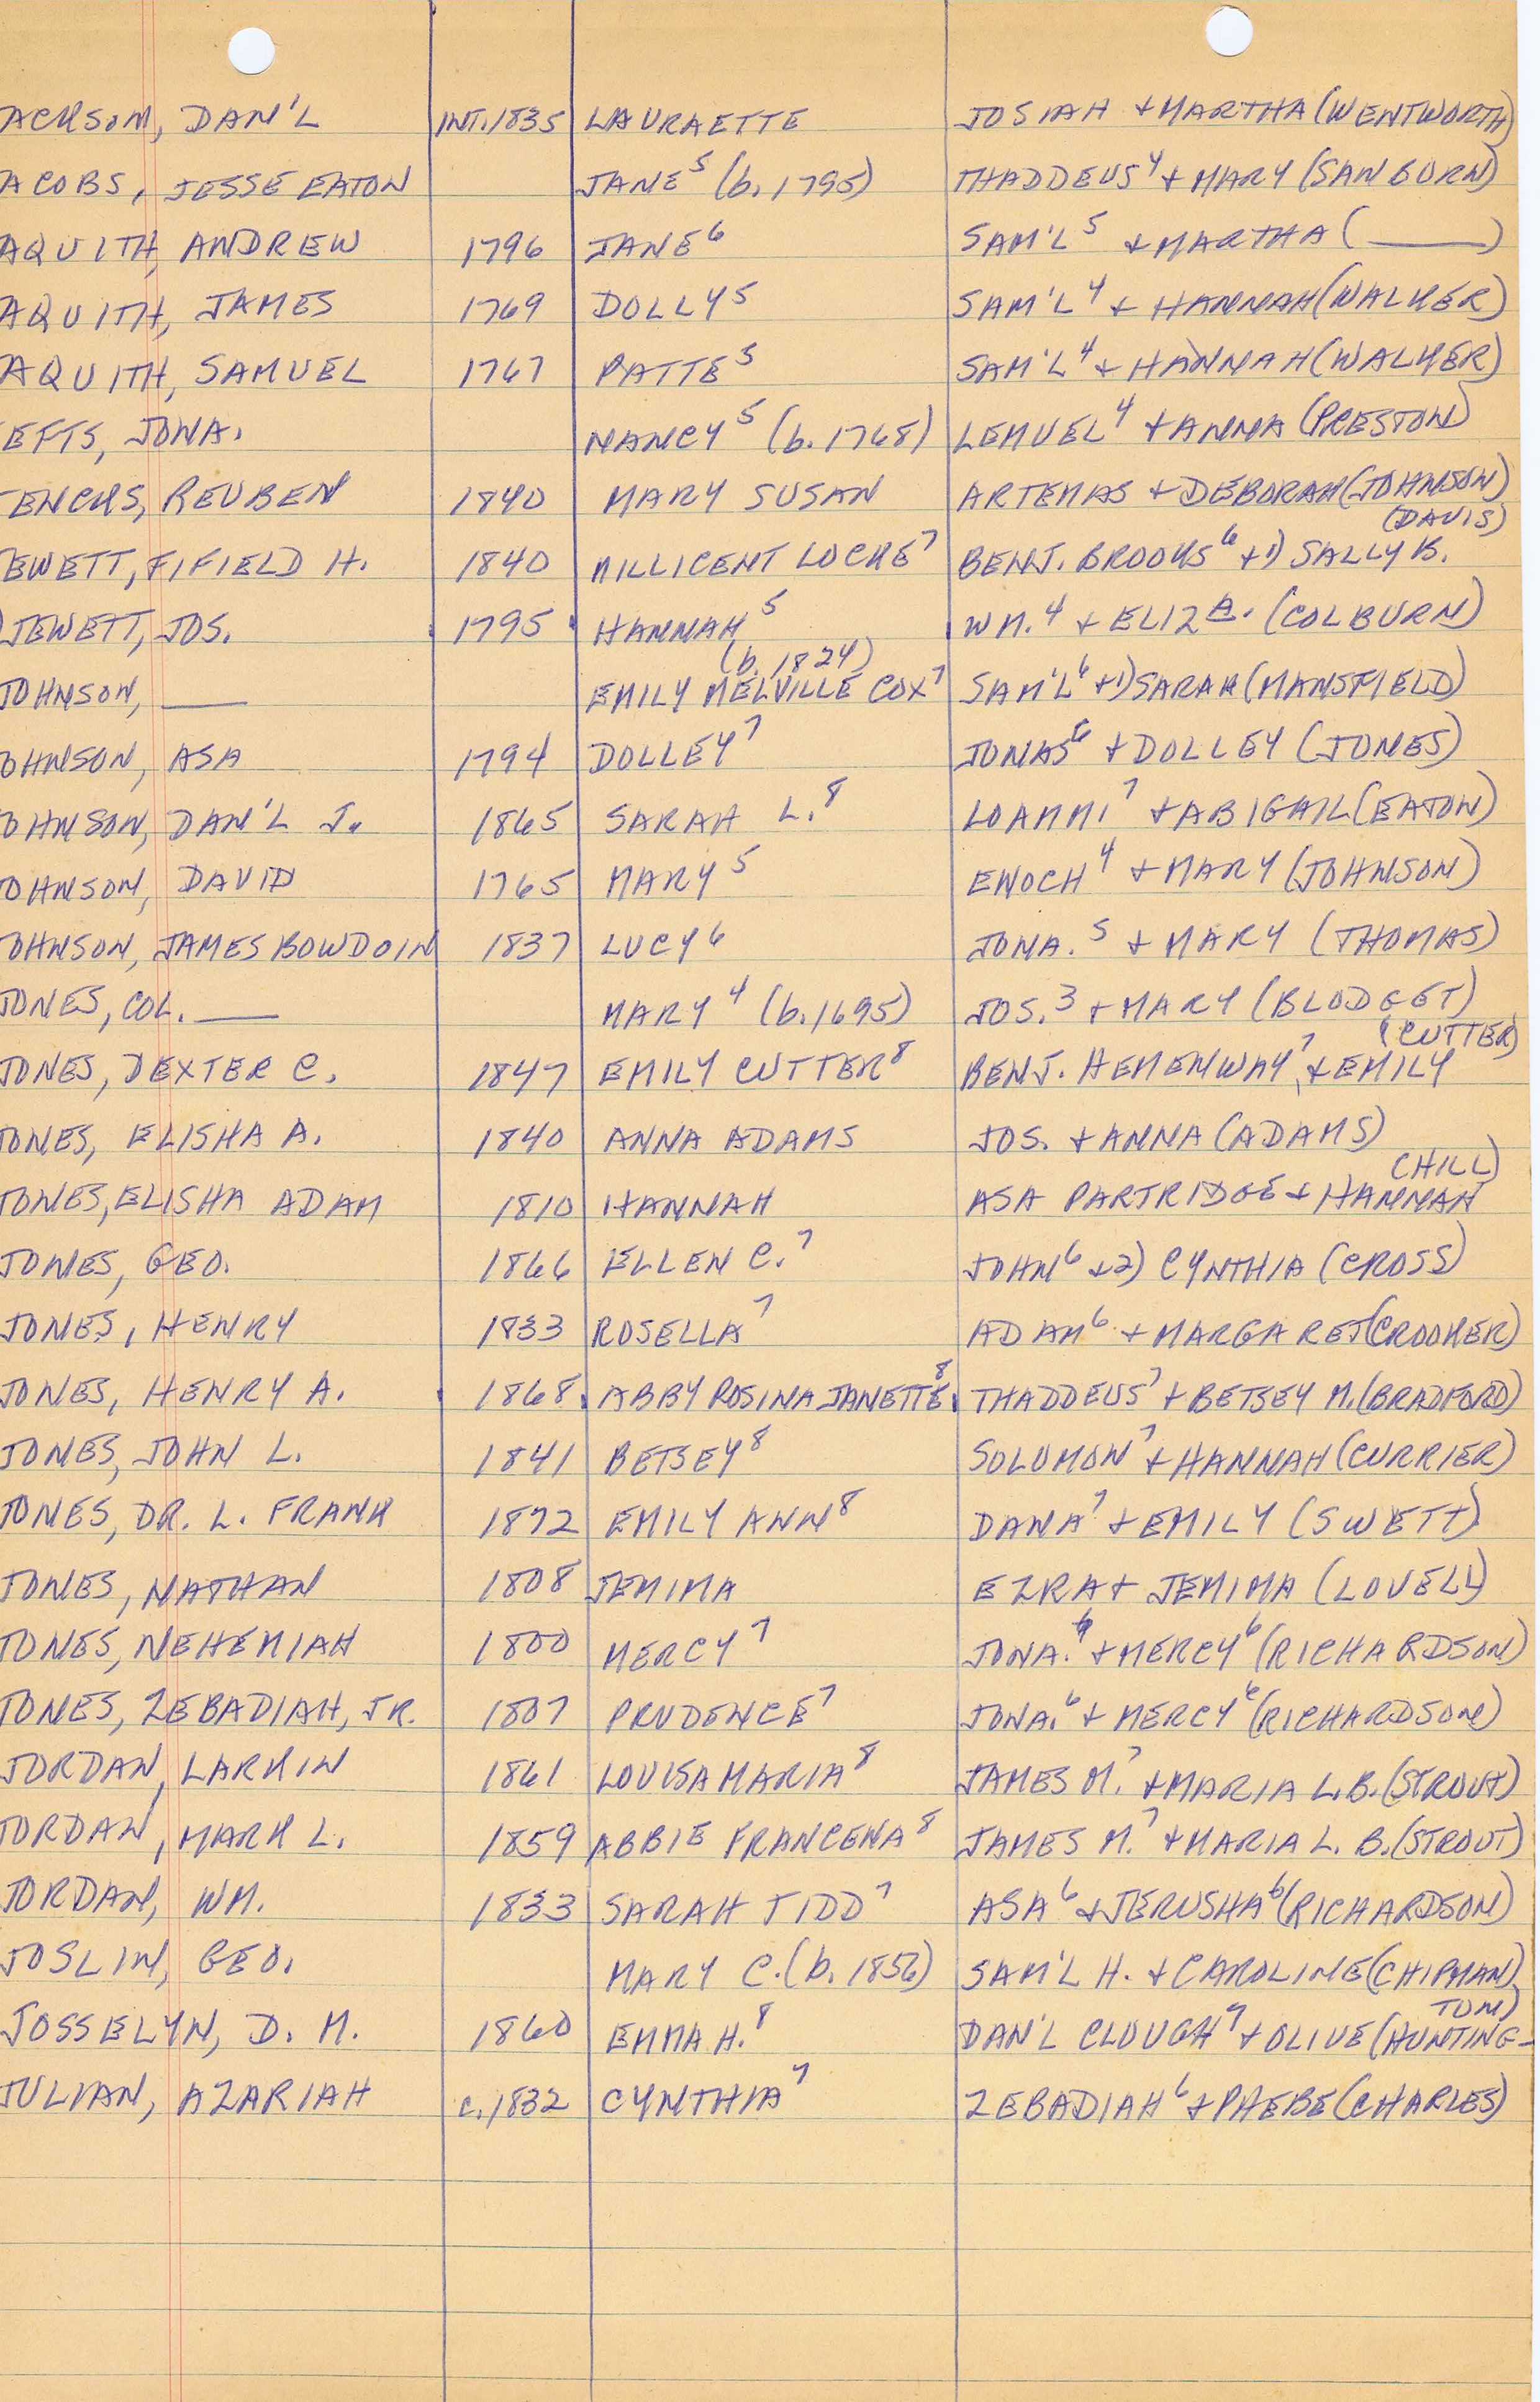 ACKSON, DAN'L INT. 1835 LAURAETTE JOSIAH + MARTHA (WENTWORTH)
ACOBS, JESSE EATON JANE⁵ (b. 1795) THADDEUS⁴ + MARY (SANBORN)
AQUITH, ANDREW 1796 JANE⁶ SAM'L⁵ + MARTHA (____)
AQUITH, JAMES 1769 DOLLY⁵ SAM'L⁴ + HANNAH (WALKER)
AQUITH, SAMUEL 1767 PATTE⁵ SAM'L⁴ + HANNAH (WALKER)
EFTS, JONA. NANCY⁵ (b. 1768) LEMUEL⁴ + ANNA (PRESTON)
ENCKS, REUBEN 1840 MARY SUSAN ARTEMAS + DEBORAH (JOHNSON)
(DAVIS)
EWETT, FIFIELD H. 1840 MILLICENT LOCKE⁷ BENJ. BROOKS⁶ + 1) SALLY B.
JEWETT, JOS. 1795 HANNAH⁵ WM.⁴ + ELIZA. (COLBURN)
(b. 1824)
JOHNSON, ____ EMILY MELVILLE COX⁷ SAM'L⁶ + 1) SARAH (MANSFIELD)
OHNSON, ASA 1794 DOLLEY⁷ JONAS⁶ + DOLLEY (JONES)
OHNSON, DAN'L J. 1865 SARAH L.⁸ LOAMMI⁷ + ABIGAIL (EATON)
OHNSON, DAVID 1765 MARY⁵ ENOCH⁴ + MARY (JOHNSON)
OHNSON, JAMES BOWDOIN 1837 LUCY⁶ JONA.⁵ + MARY (THOMAS)
JONES, COL. ____ MARY⁴ (b. 1695) JOS.³ + MARY (BLODGET)
(CUTTER)
JONES, DEXTER C. 1847 EMILY CUTTER⁸ BENJ. HEMENWAY⁷ + EMILY
JONES, ELISHA A. 1840 ANNA ADAMS JOS. + ANNA (ADAMS)
CHILL)
JONES, ELISHA ADAM 1810 HANNAH ASA PARTRIDGE + HANNAH
JONES, GEO. 1866 ELLEN C.⁷ JOHN⁶ + 2) CYNTHIA (CROSS)
JONES, HENRY 1833 ROSELLA⁷ ADAM⁶ + MARGARET (CROOKER)
JONES, HENRY A. 1868 ABBY ROSINA JANETTE⁸ THADDEUS⁷ + BETSEY M. (BRADFORD)
JONES, JOHN L. 1841 BETSEY⁸ SOLOMON⁷ + HANNAH (CURRIER)
JONES, DR. L. FRANK 1872 EMILY ANN⁸ DANA⁷ + EMILY (SWETT)
JONES, NATHAN 1808 JEMIMA EZRA + JEMIMA (LOVELL)
JONES, NEHEMIAH 1800 MERCY⁷ JONA.⁶ + MERCY⁶ (RICHARDSON)
JONES, ZEBADIAH, JR. 1807 PRUDENCE⁷ JONA.⁶ + MERCY⁶ (RICHARDSON)
JORDAN, LARKIN 1861 LOUISA MARIA⁸ JAMES M.⁷ + MARIA L. B. (STROUT)
JORDAN, MARK L. 1859 ABBIE FRANCENA⁸ JAMES M.⁷ + MARIA L. B. (STROUT)
JORDAN, WM. 1833 SARAH TIDD⁷ ASA⁶ + JERUSHA⁶ (RICHARDSON)
JOSLIN, GEO. MARY C. (b. 1856) SAM'L H. + CAROLINE (CHIPMAN)
TON)
JOSSELYN, D. M. 1860 EMMA H.⁸ DAN'L CLOUGH⁷ + OLIVE (HUNTING-
JULIAN, AZARIAH c. 1832 CYNTHIA⁷ ZEBADIAH⁶ + PHEBE (CHARLES)